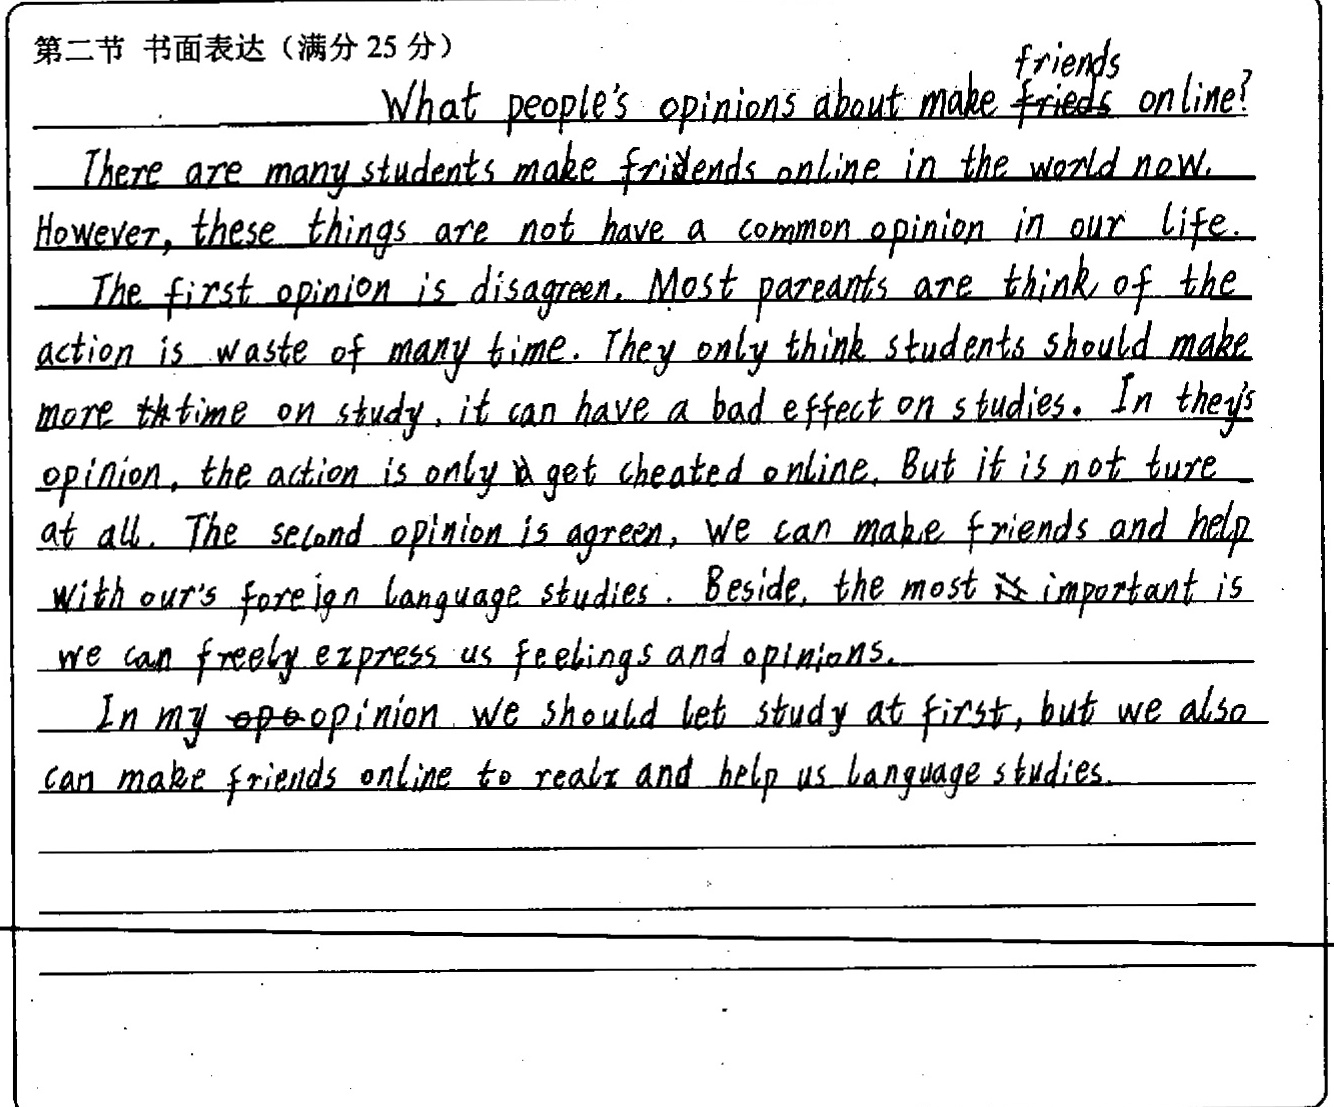 第二节 书面表达（满分 25 分）
friends
What people's opinions about make frieds online?
There are many students make friends online in the world now.
However, these things are not have a common opinion in our life.
The first opinion is disagreen. Most pareants are think of the
action is waste of many time. They only think students should make
more time on study, it can have a bad effect on studies. In they's
opinion, the action is only get cheated online. But it is not ture
at all. The second opinion is agreen, we can make friends and help
with our's foreign language studies. Beside, the most important is
we can freely express us feelings and opinions.
In my opinion we should let study at first, but we also
can make friends online to and help us language studies.